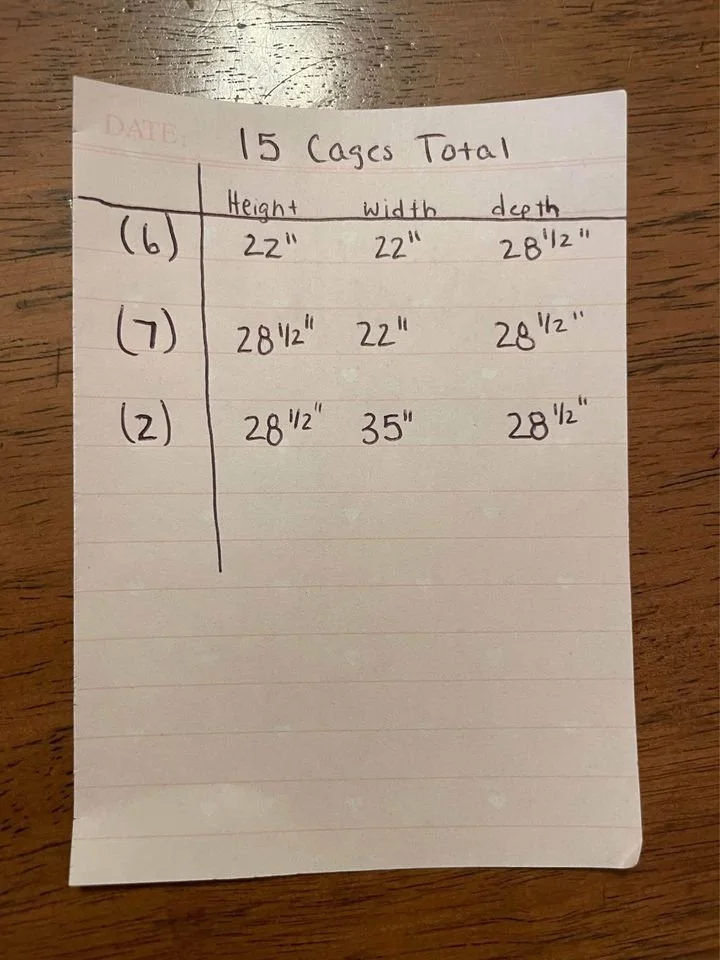 DATE:
15 Cages Total
Height width depth
(6) 22" 22" 28 1/2"
(7) 28 1/2" 22" 28 1/2"
(2) 28 1/2" 35" 28 1/2"